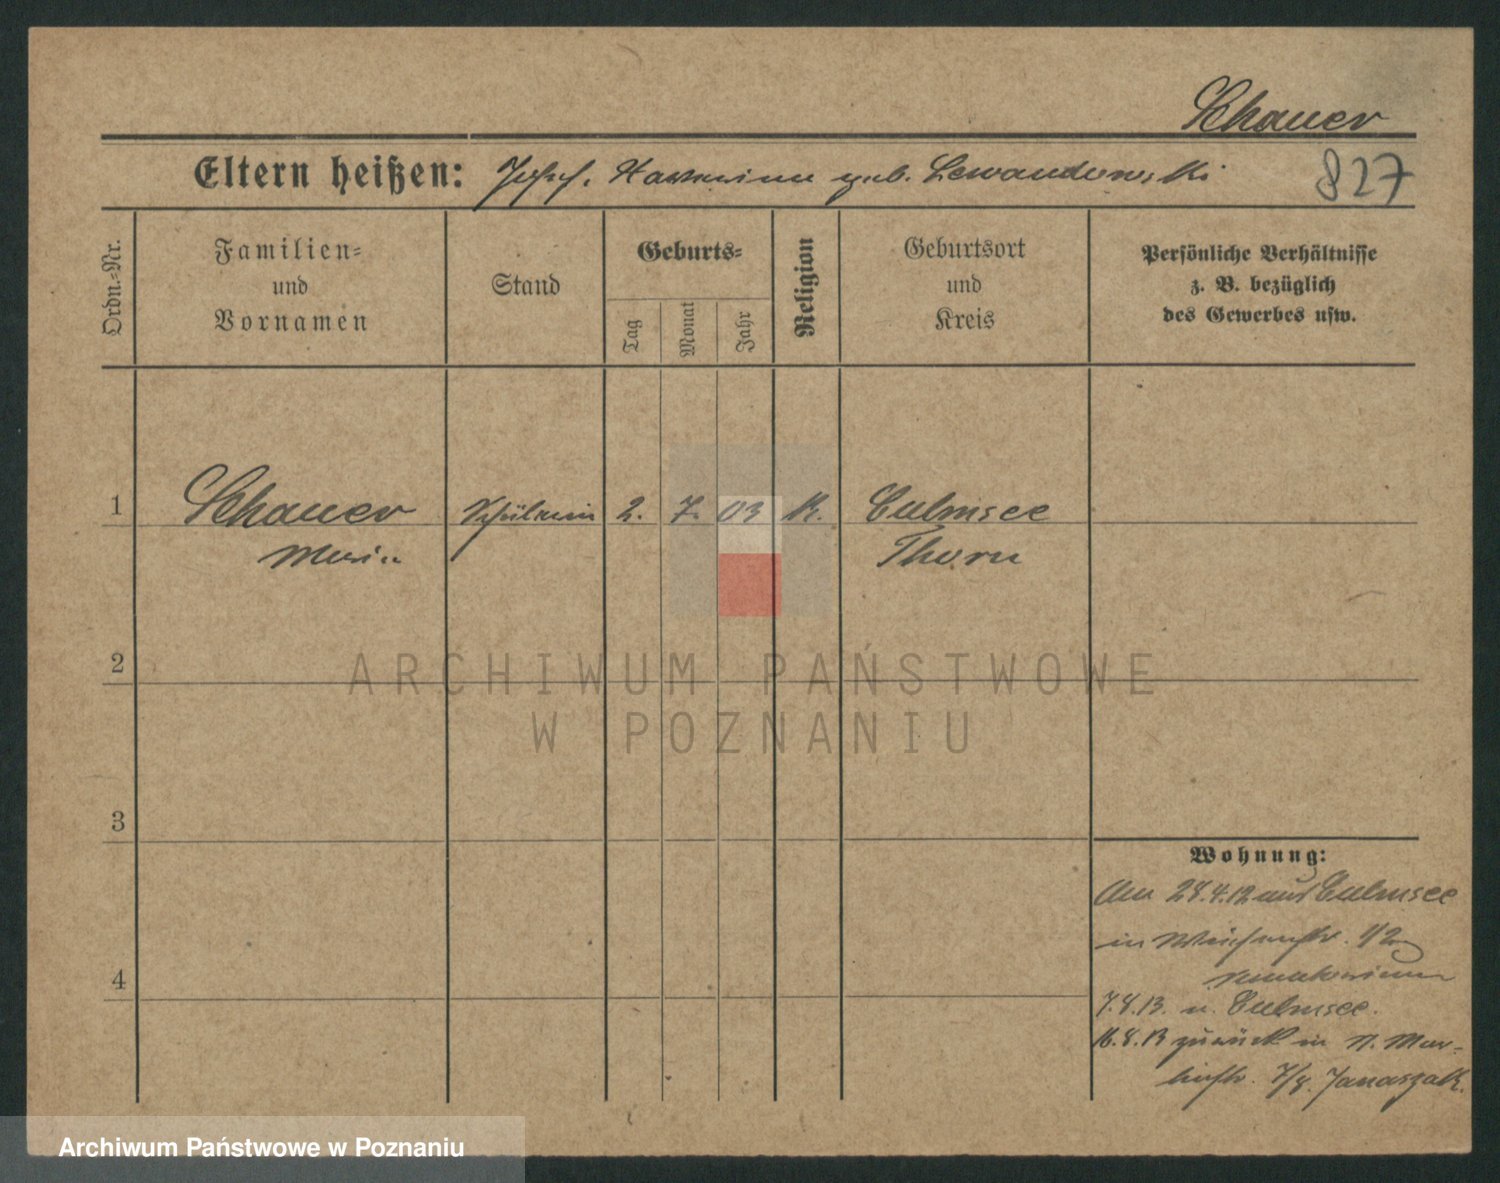 Schauer
Eltern heißen: Josef. Katharina geb. Lewandowski
827
Ordn.-Nr.
Familien-
und
Vornamen
Stand
Geburts-
Tag
Monat
Jahr
Religion
Geburtsort
und
Kreis
Persönliche Verhältnisse
z. B. bezüglich
des Gewerbes usw.
1
Schauer Schülerin 2. 7. 03 K. Culmsee
Maria Thorn
2
ARCHIWUM PAŃSTWOWE
W POZNANIU
3
4
Wohnung:
Am 28.4.12 aus Culmsee
in 1/2
7.8.13. n. Culmsee.
16.8.13 zurück in St. Mar-
tinstr. 7/8. Janaszak.
Archiwum Państwowe w Poznaniu